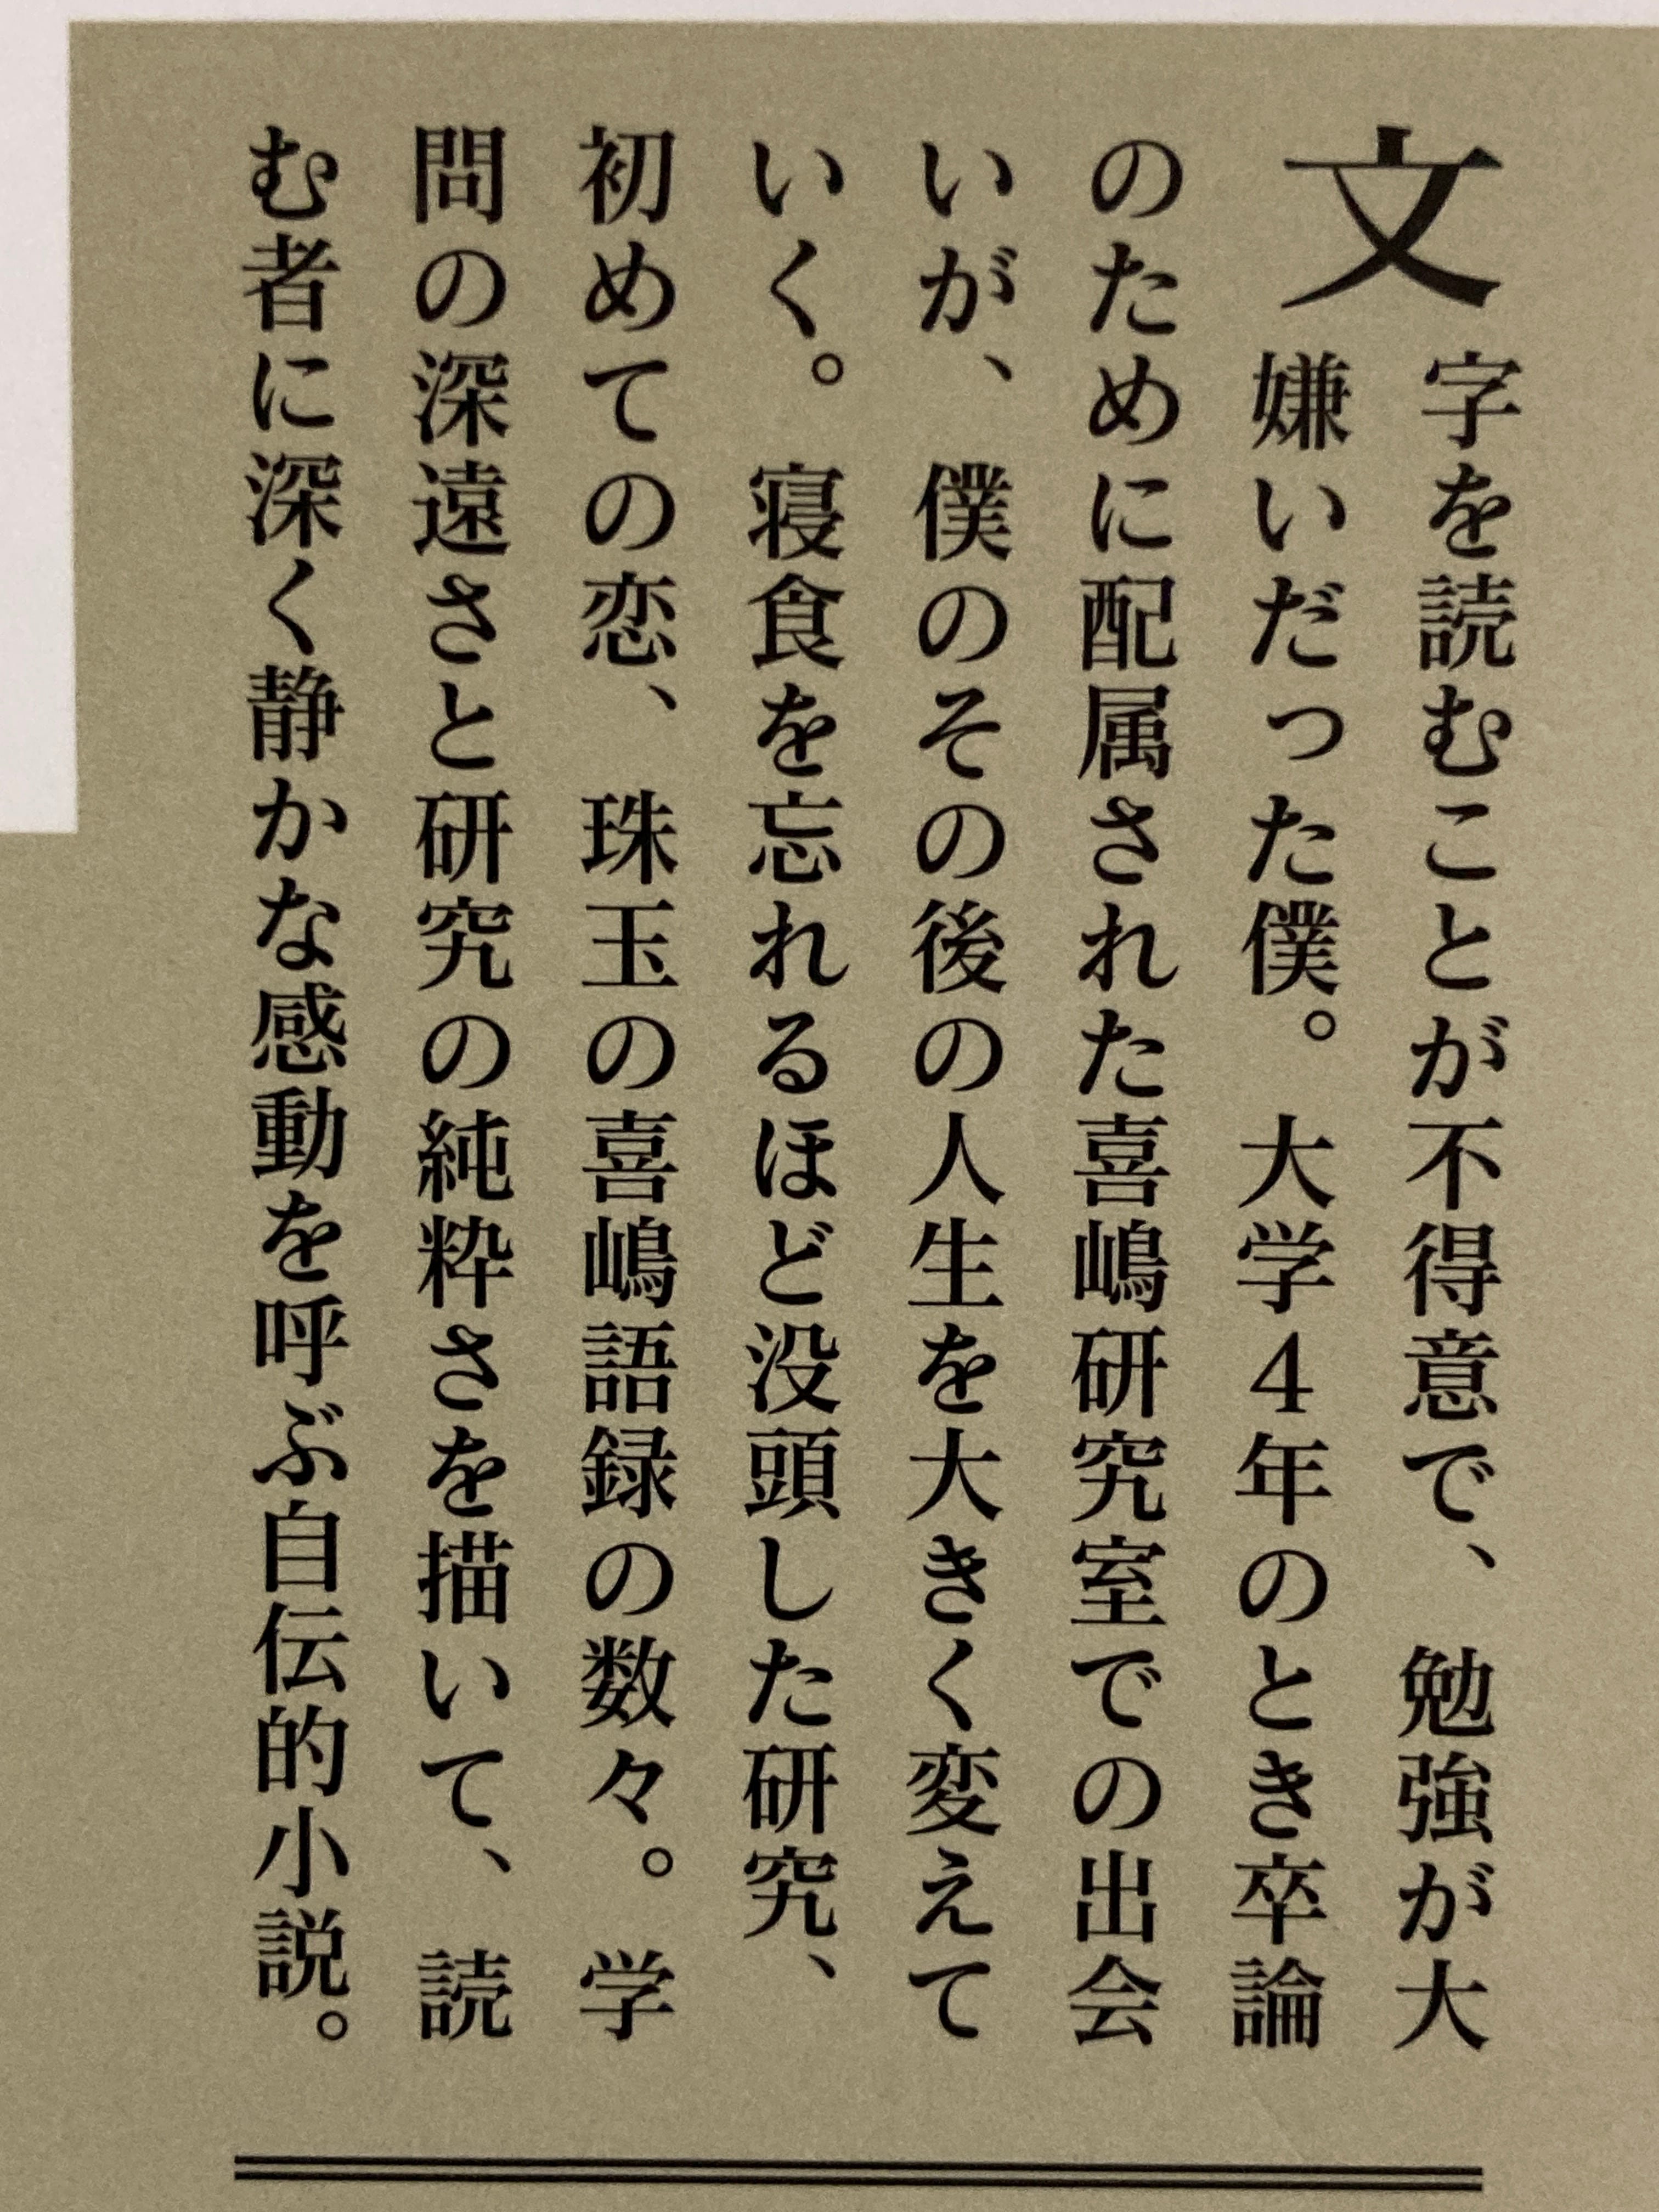 文字を読むことが不得意で、勉強が大
嫌いだった僕。大学4年のとき卒論
のために配属された喜嶋研究室での出会
いが、僕のその後の人生を大きく変えて
いく。寝食を忘れるほど没頭した研究、
初めての恋、珠玉の喜嶋語録の数々。学
問の深遠さと研究の純粋さを描いて、読
む者に深く静かな感動を呼ぶ自伝的小説。